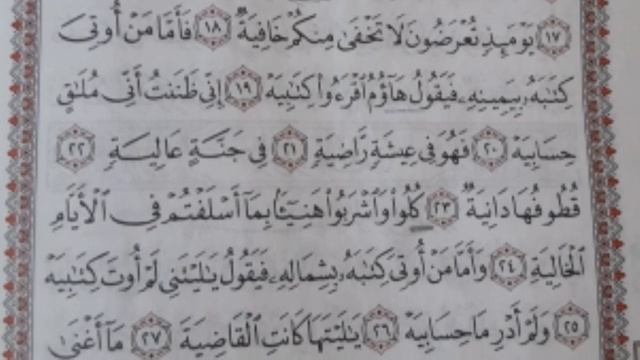 ﴿١٧﴾ يَوْمَئِذٍ تُعْرَضُونَ لَا تَخْفَىٰ مِنكُمْ خَافِيَةٌ ﴿١٨﴾ فَأَمَّا مَنْ أُوتِيَ
كِتَٰبَهُۥ بِيَمِينِهِۦ فَيَقُولُ هَآؤُمُ ٱقْرَءُوا۟ كِتَٰبِيَهْ ﴿١٩﴾ إِنِّى ظَنَنتُ أَنِّى مُلَٰقٍ
حِسَابِيَهْ ﴿٢٠﴾ فَهُوَ فِى عِيشَةٍ رَّاضِيَةٍ ﴿٢١﴾ فِى جَنَّةٍ عَالِيَةٍ ﴿٢٢﴾
قُطُوفُهَا دَانِيَةٌ ﴿٢٣﴾ كُلُوا۟ وَٱشْرَبُوا۟ هَنِيٓـًٔۢا بِمَآ أَسْلَفْتُمْ فِى ٱلْأَيَّامِ
ٱلْخَالِيَةِ ﴿٢٤﴾ وَأَمَّا مَنْ أُوتِىَ كِتَٰبَهُۥ بِشِمَالِهِۦ فَيَقُولُ يَٰلَيْتَنِى لَمْ أُوتَ كِتَٰبِيَهْ
﴿٢٥﴾ وَلَمْ أَدْرِ مَا حِسَابِيَهْ ﴿٢٦﴾ يَٰلَيْتَهَا كَانَتِ ٱلْقَاضِيَةَ ﴿٢٧﴾ مَآ أَغْنَىٰ